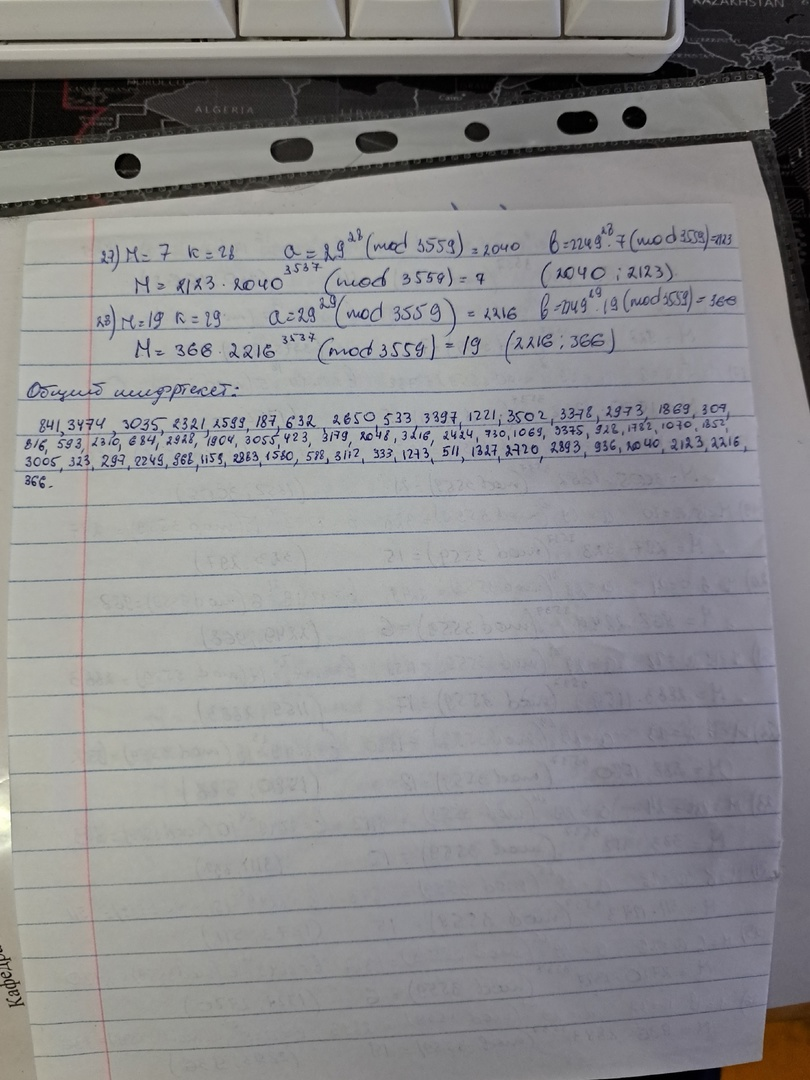 KAZAKHSTAN
MOROCCO
ALGERIA
27) М = 7 к = 28 a = 29²⁸ (mod 3559) = 2040 b = 2249²⁸ · 7 (mod 3559) = 2123
М = 2123 · 2040³⁵³⁷ (mod 3559) = 7 (2040 ; 2123)
28) М = 19 к = 29 a = 29²⁹ (mod 3559) = 2216 b = 2249²⁹ · 19 (mod 3559) = 366
М = 366 · 2216³⁵³⁷ (mod 3559) = 19 (2216 ; 366)
Общий шифртекст:
841, 3474, 3035, 2321, 2599, 187, 632 2650, 533, 3397, 1221; 3502, 3378, 2973, 1869, 307,
816, 593, 2310, 684, 2928, 1904, 3055, 423, 3179, 2048, 3216, 2424, 730, 1069, 3375, 928, 1782, 1070, 1352,
3005, 323, 297, 2249, 968, 1159, 2883, 1530, 588, 3112, 333, 1273, 511, 1327, 2720, 2893, 936, 2040, 2123, 2216,
366.
Кафедра